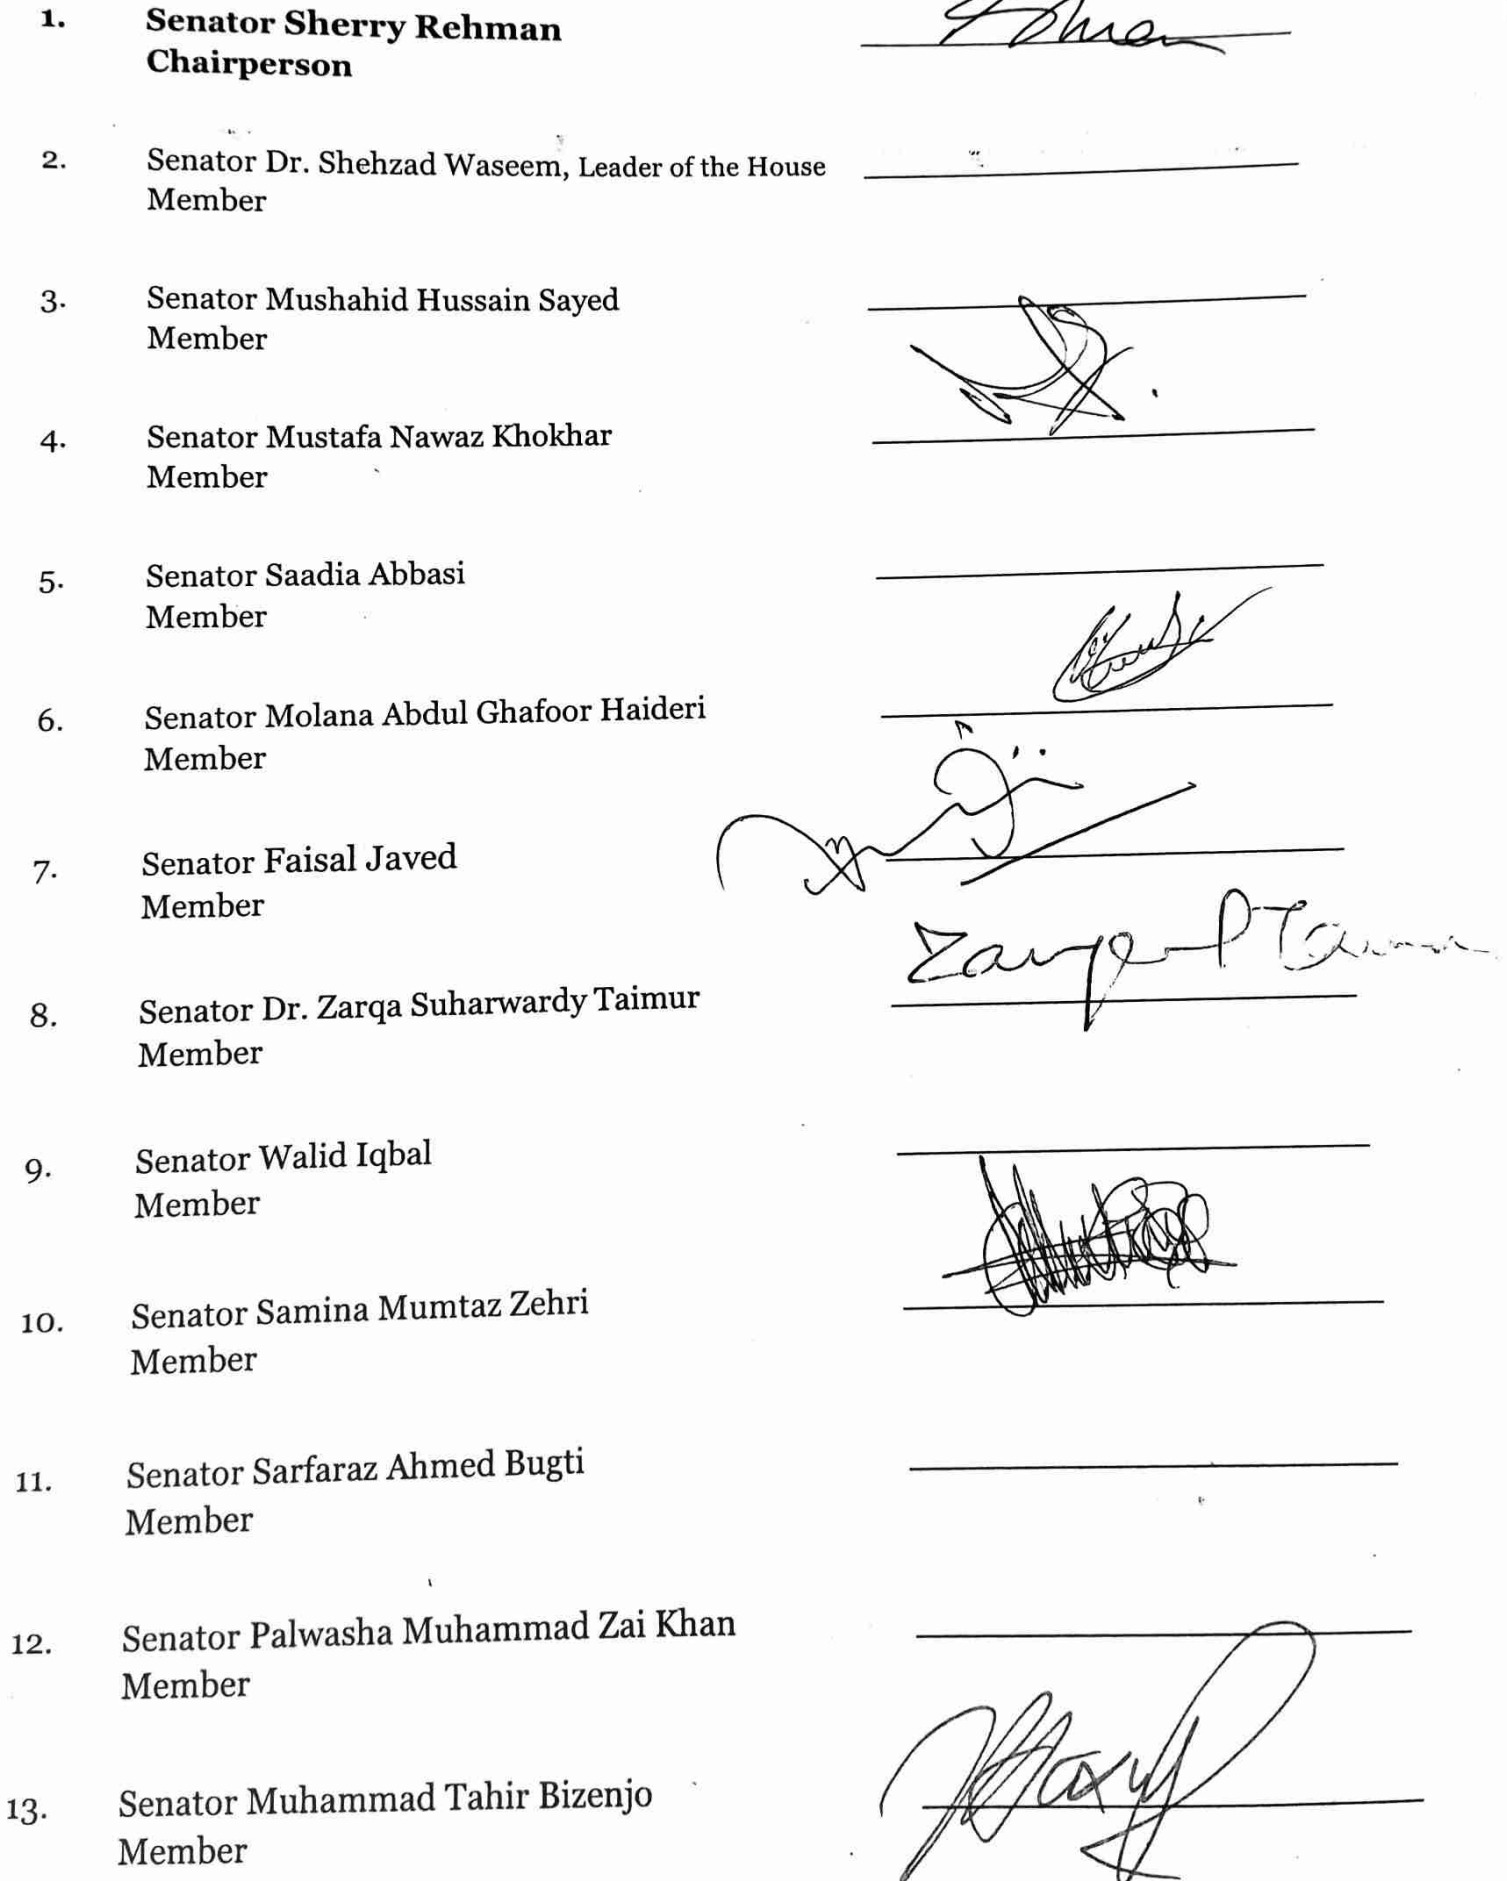 1. Senator Sherry Rehman
Chairperson
2. Senator Dr. Shehzad Waseem, Leader of the House
Member
3. Senator Mushahid Hussain Sayed
Member
4. Senator Mustafa Nawaz Khokhar
Member
5. Senator Saadia Abbasi
Member
6. Senator Molana Abdul Ghafoor Haideri
Member
7. Senator Faisal Javed
Member
8. Senator Dr. Zarqa Suharwardy Taimur
Member
9. Senator Walid Iqbal
Member
10. Senator Samina Mumtaz Zehri
Member
11. Senator Sarfaraz Ahmed Bugti
Member
12. Senator Palwasha Muhammad Zai Khan
Member
13. Senator Muhammad Tahir Bizenjo
Member